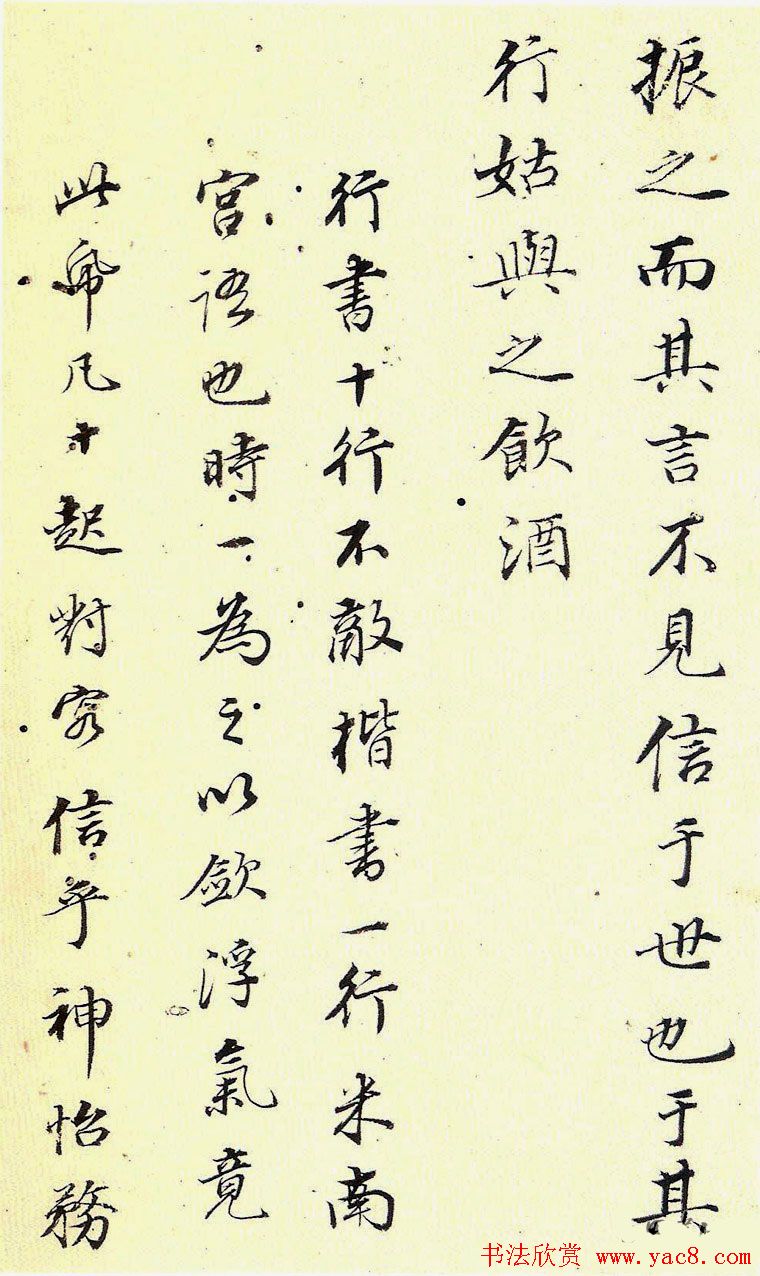 振之而其言不見信于世也于其
行姑與之飲酒
行書十行不敵楷書一行米南
宮語也時一為之以斂浮氣竟
此帋凡十起對客信乎神怡務
书法欣赏 www.yac8.com